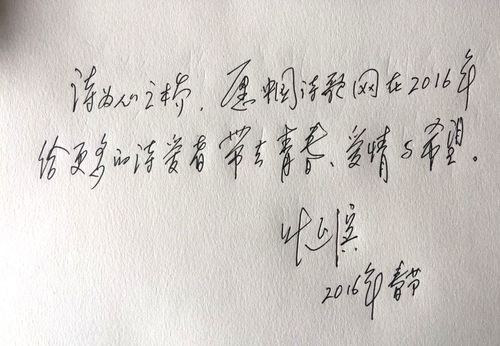 诗为心之桥，愿中国诗歌网在2016年
给更多的诗爱者带去青春、爱情与希望。
叶延滨
2016年春节